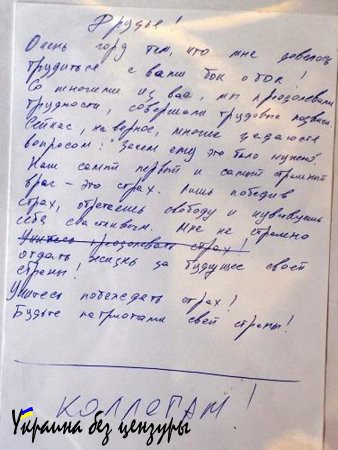 Друзья!
Очень горд тем, что мне довелось
трудиться с вами бок о бок!
Со многими из вас, мы преодолевали
трудности, совершали трудовые подвиги.
Сейчас, наверное, многие задаются
вопросом: "Зачем ему это было нужно?
Наш самый первый и самый страшный
враг - это страх. Лишь победив
страх, обретаешь свободу и чувствуешь
себя счастливым. Мне не страшно
Учитесь преодолевать страх!
отдать жизнь за будущее своей
страны!
Учитесь побеждать страх!
Будьте патриотами своей страны!
КОЛЛЕГАМ!
Украина без цензуры